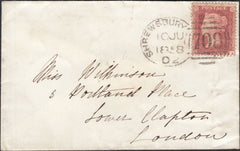 SHREWSBURY
10 JU
1858
708
Miss Wilkinson
5 Portland Place
Lower Clapton
London